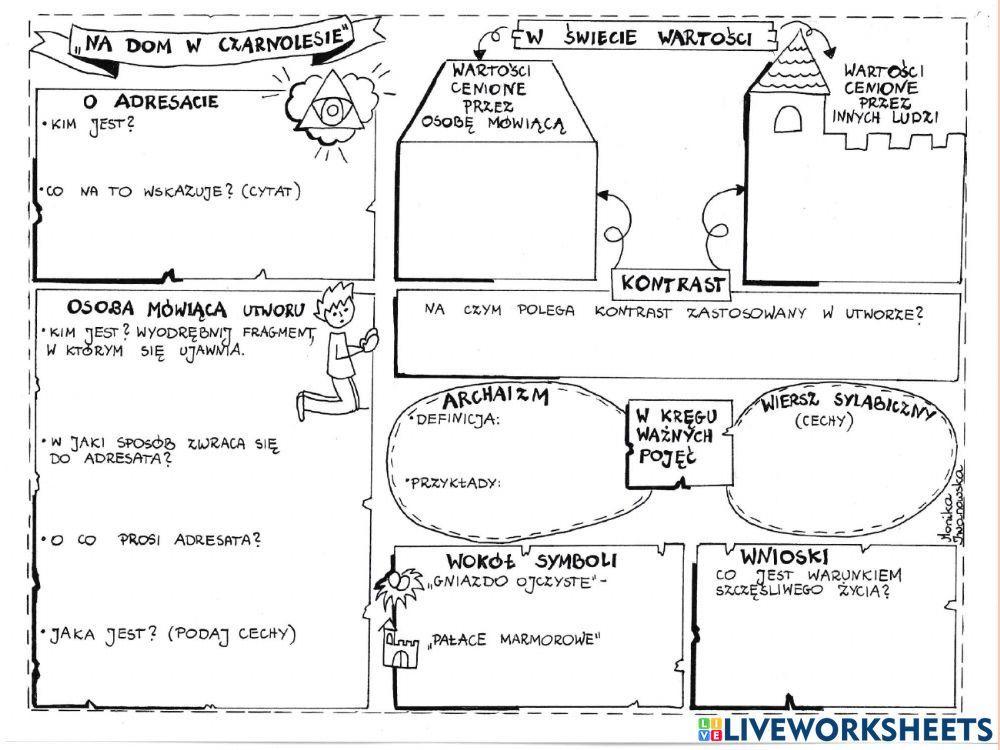 „NA DOM W CZARNOLESIE"
O ADRESACIE
• KIM JEST?
• CO NA TO WSKAZUJE? (CYTAT)
OSOBA MÓWIĄCA UTWORU
• KIM JEST? WYODRĘBNIJ FRAGMENT,
W KTÓRYM SIĘ UJAWNIA.
• W JAKI SPOSÓB ZWRACA SIĘ
DO ADRESATA?
• O CO PROSI ADRESATA?
• JAKA JEST? (PODAJ CECHY)
W ŚWIECIE WARTOŚCI
WARTOŚCI
CENIONE
PRZEZ
OSOBĘ MÓWIĄCĄ
WARTOŚCI
CENIONE
PRZEZ
INNYCH LUDZI
KONTRAST
NA CZYM POLEGA KONTRAST ZASTOSOWANY W UTWORZE?
ARCHAIZM
• DEFINICJA:
• PRZYKŁADY:
W KRĘGU
WAŻNYCH
POJĘĆ
WIERSZ SYLABICZNY
(CECHY)
Monika
Iwanowska
WOKÓŁ SYMBOLI
„GNIAZDO OJCZYSTE" -
„PAŁACE MARMOROWE"
WNIOSKI
CO JEST WARUNKIEM
SZCZĘŚLIWEGO ŻYCIA?
LIVE LIVEWORKSHEETS